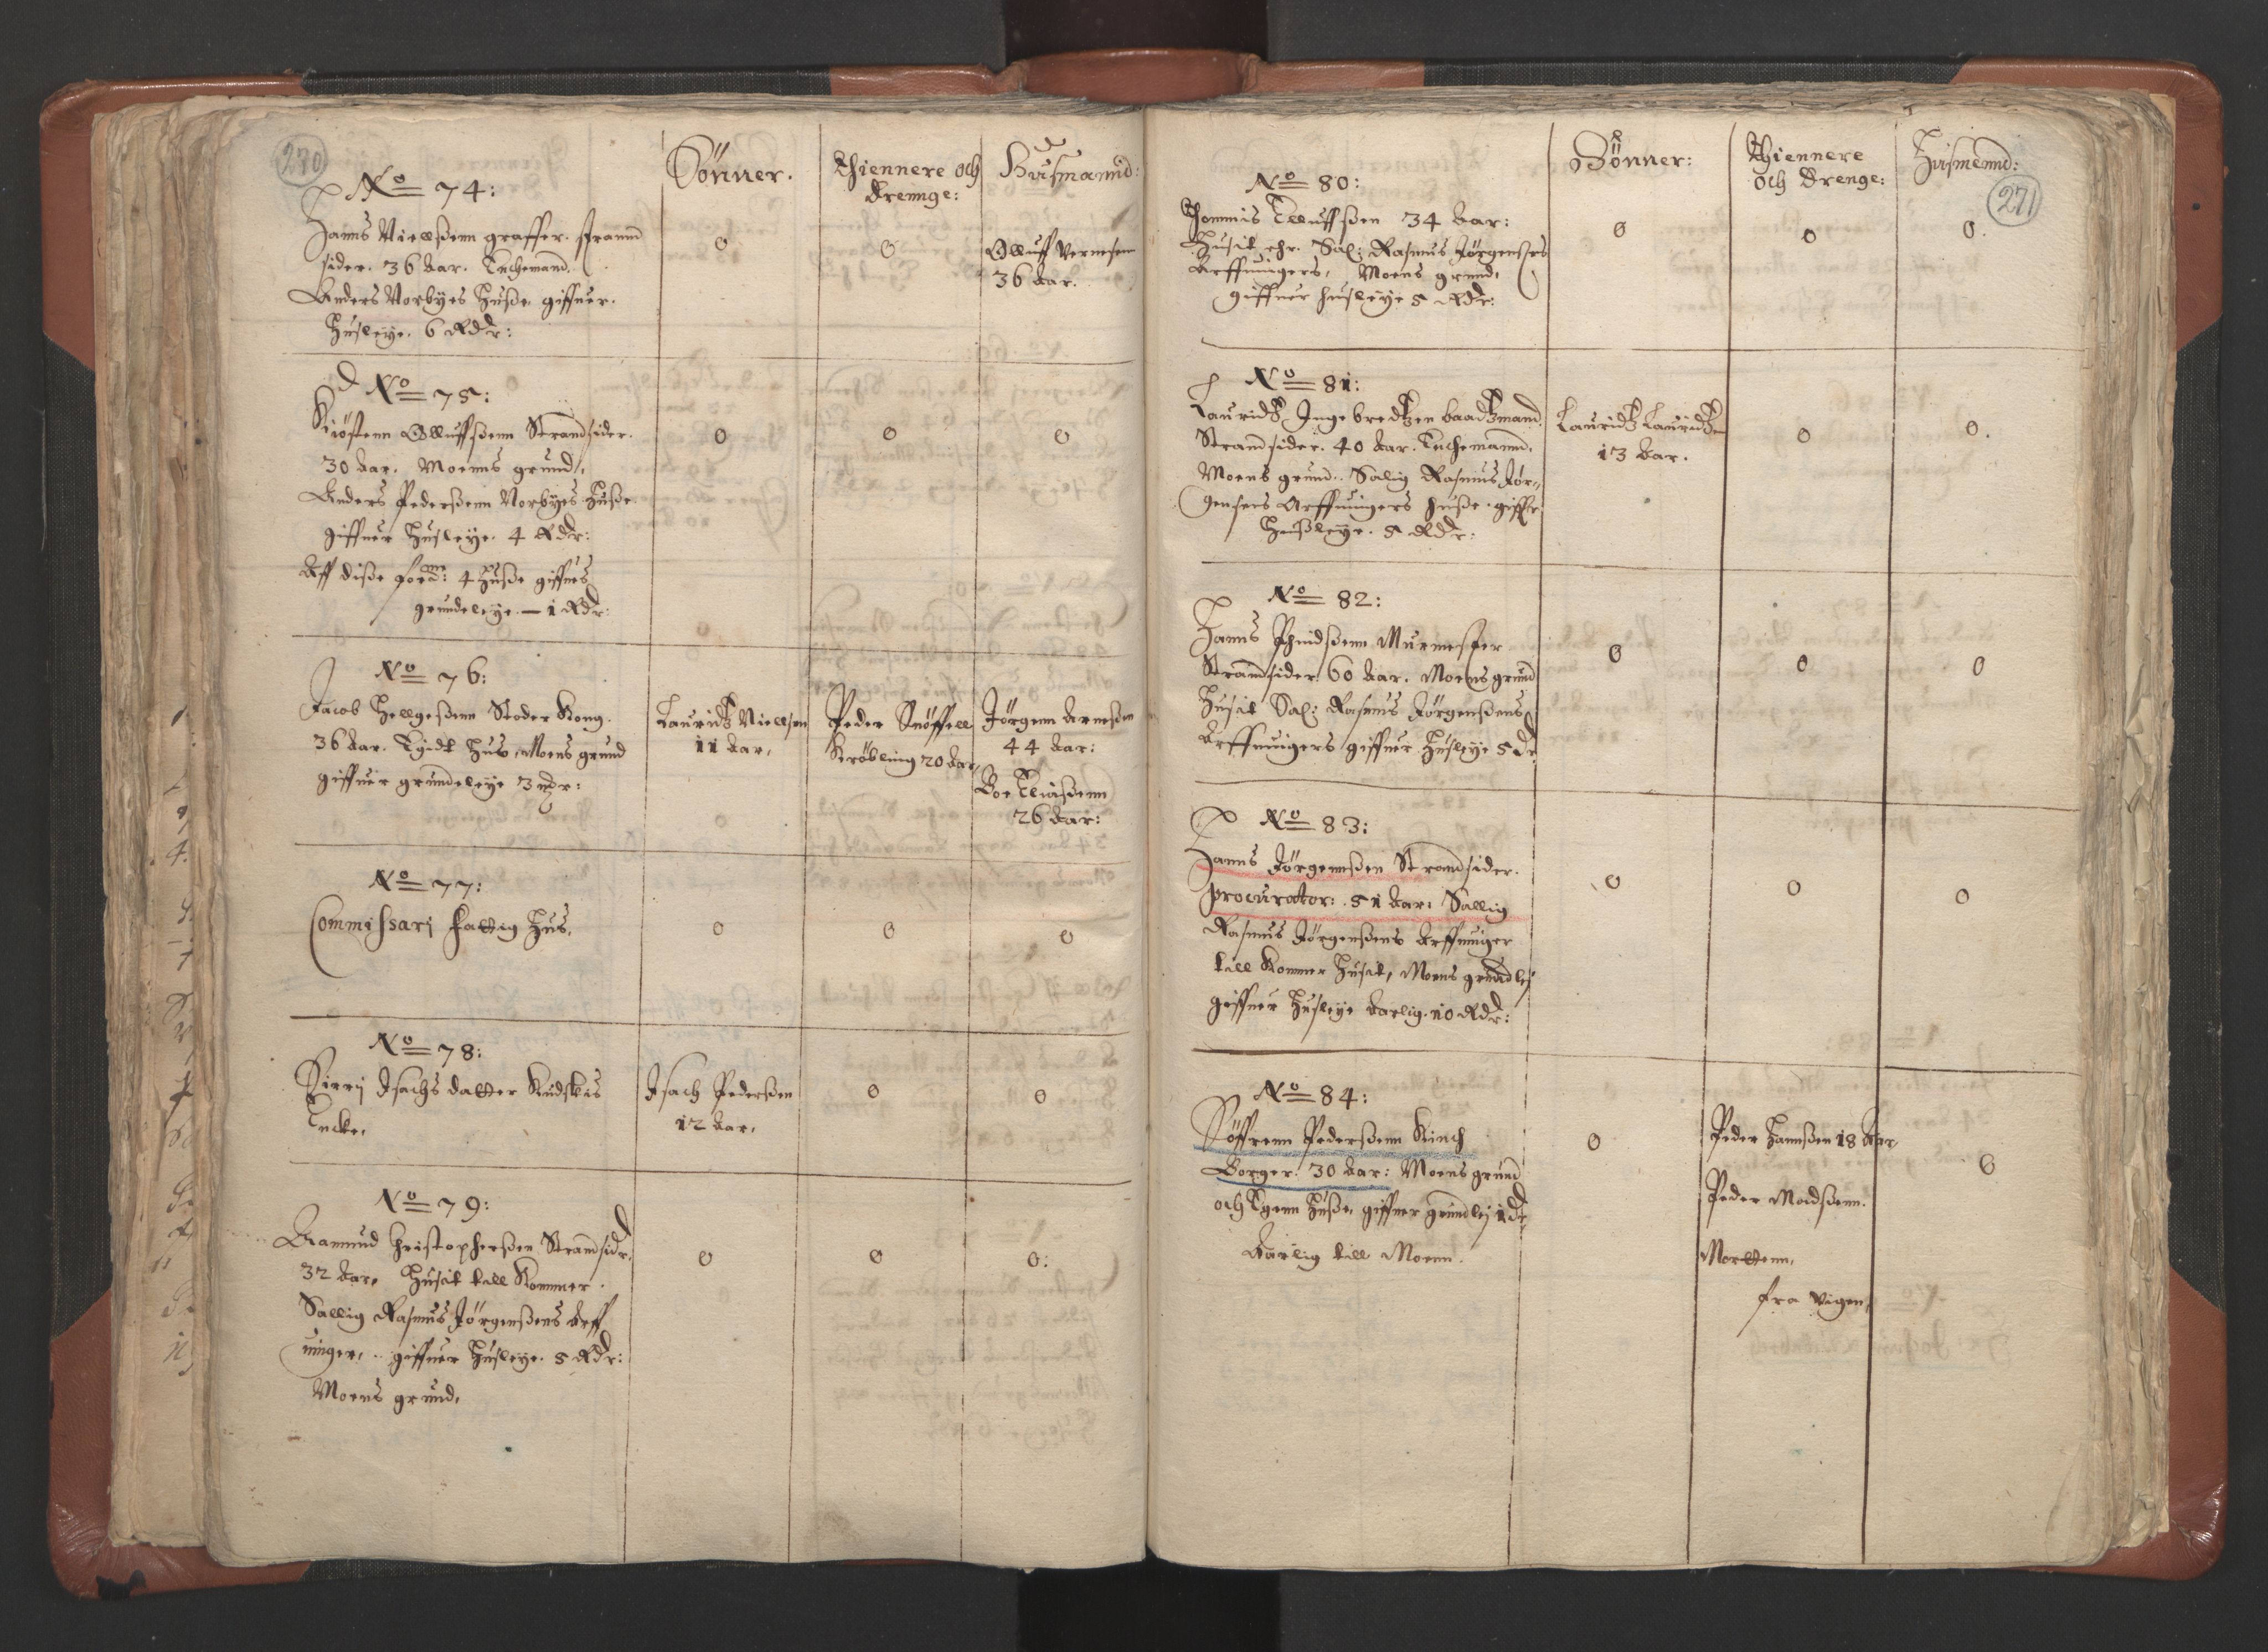 270
Sönner.
Thiennere och
Drennge:
Husmannd:
No 74:
Hanns Niellßenn graffer. strannd
sider. 36 Aar. Enchemand.
Anders Norbyes Huße, giffuer.
Husleye. 6 Rdr:
0
0
Olluff
36 Aar.
No 75:
Kiöstenn Olluffßenn Strandsider.
30 Aar. Moenns grund,
Anders Pederßenn Norbyes Huße
giffuer Husleye. 4 Rdr:
Aff diße 4 Huße giffues
grundeleye — 1 Rdr:
0
0
0
No 76:
Jacob Hellgeßenn Stoder Kong.
36 Aar. Egidt Hus, Moens grund
giffuer grundeleye 3 Rdr:
Lauridtz Niellsen
11 Aar,
Peder Snöffell
Kröbling 20 Aar,
Jörgenn Arneßen
44 Aar:
Boe
26 Aar:
No 77:
Commissarj Fattig Hus,
0
0
0
No 78:
Sirrij Isachs datter Kudskis
Encke,
Isach Pederßen
12 Aar,
0
0
No 79:
Aamund Christopherßen Strandsidr.
32 Aar, Huset till Kommer
Sallig Rasmus Jörgenßens Arff
uinger, giffuer Husleye. 5 Rdr:
Moens grund,
0
0
0:
271
Sönner:
Thiennere
och Drenge:
Husmennd:
No 80:
Thommis Elluffßen 34 Aar:
Huset ehr. Sal: Rasmus Jörgenses
Arffuingers, Moens grund,
giffuer husleye 5 Rdr:
0
0
0.
No 81:
Lauridtz Ingebredtzen baadtzmand
Strandsider. 40 Aar. Enchemannd,
Moens grund. Salig Rasmus Jör-
gensens Arffuingers Huße. giffr
Hußleye. 5 Rdr:
Lauridtz Lauridtzen
13 Aar.
0
0.
No 82:
Hanns Murmester
Strandsider 60 Aar. Moens grund
Huset Sal: Rasmus Jörgenßens
Arffuingers giffuer Husleye 5 dr
0
0
0
No 83:
Hanns Jörgennßen Strandsider.
procurator: 51 Aar: Sallig
Rasmus Jörgenßens Arffuinger
till Kommer Huset, Moens grundlej
giffuer Husleye Aarlig. 10 Rdr:
0
0
0
No 84:
Söffrenn Pederßenn Kinch
Borger. 30 Aar: Moens grund
och Egenn Huße, giffuer grundlej 1 dr
Aarlig till Moenn.
0
Peder Hannßen 18 Aar
Peder Madßenn.
Morttenn,
fra Vigen,
0